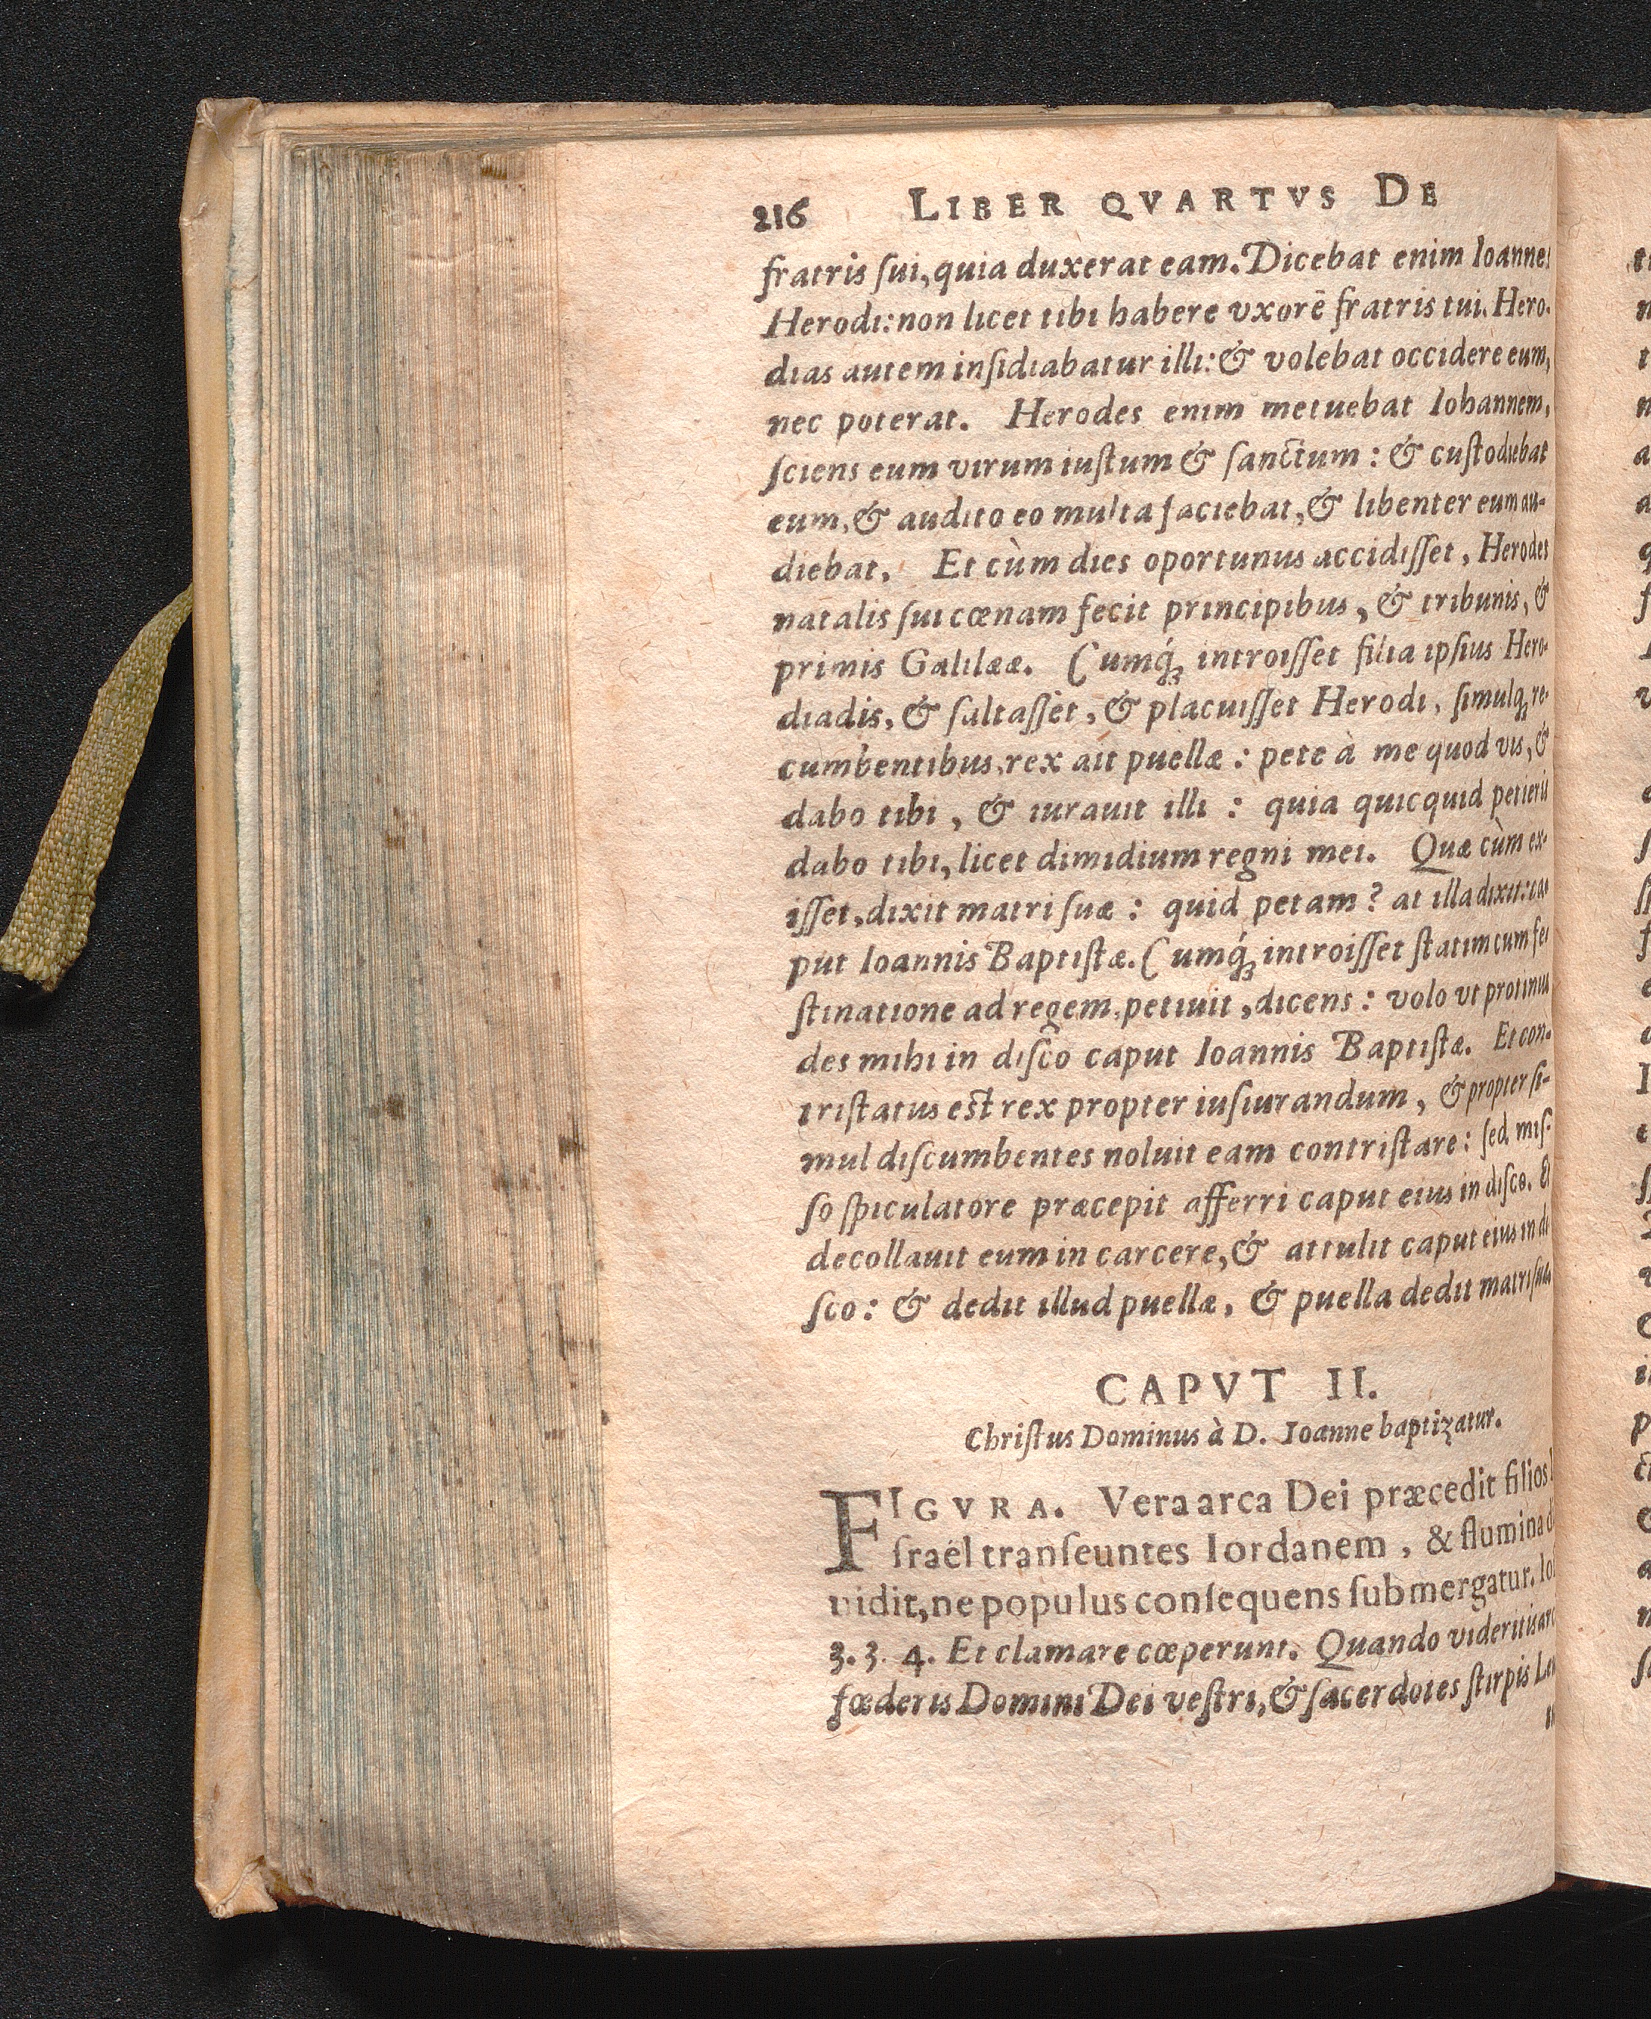 216 LIBER QVARTVS DE
fratris ſui, quia duxerat eam. Dicebat enim Ioannes
Herodi: non licet tibi habere vxorē fratris tui. Hero-
dias autem inſidiabatur illi: & volebat occidere eum,
nec poterat. Herodes enim metuebat Iohannem,
ſciens eum virum iuſtum & ſanctum: & cuſtodiebat
eum, & audito eo multa faciebat, & libenter eum au-
diebat. Et cùm dies oportunus accidiſſet, Herodes
natalis ſui cœnam fecit principibus, & tribunis, &
primis Galilææ. Cumq́ꝫ introiſſet filia ipſius Hero-
diadis, & ſaltaſſet, & placuiſſet Herodi, ſimulqꝫ re-
cumbentibus, rex ait puellæ: pete à me quod vis, &
dabo tibi, & iurauit illi: quia quicquid petieris
dabo tibi, licet dimidium regni mei. Quæ cùm ex-
iſſet, dixit matri ſuæ: quid petam? at illa dixit: ca-
put Ioannis Baptiſtæ. Cumq́ꝫ introiſſet ſtatim cum fe-
ſtinatione ad regem, petiuit, dicens: volo vt protinus
des mihi in diſco caput Ioannis Baptiſtæ. Et con-
triſtatus est rex propter iuſiurandum, & propter ſi-
mul diſcumbentes noluit eam contriſtare: ſed miſ-
ſo ſpiculatore præcepit afferri caput eius in diſco. Et
decollauit eum in carcere, & attulit caput eius in di
ſco: & dedit illud puellæ, & puella dedit matri ſuæ
CAPVT II.
Chriſtus Dominus à D. Ioanne baptizatur.
FIGVRA. Vera arca Dei præcedit filios I
ſraël tranſeuntes Iordanem, & flumina di
uidit, ne populus conſequens ſubmergatur. Ioſ
3. 3. 4. Et clamare cœperunt. Quando videritis arc
fœderis Domini Dei veſtri, & ſacerdotes ſtirpis Leu